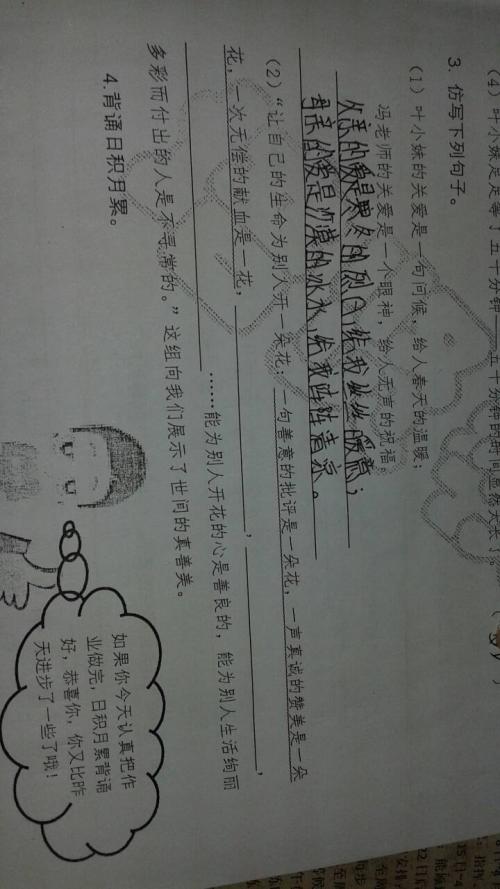 (4) 叶小妹足足等了五十分钟——五十分钟的时间
3. 仿写下列句子。
(1) 叶小妹的关爱是一句问候，给人春天的温暖；
冯老师的关爱是一个眼神，给人无声的祝福。
父亲的爱是寒冬的烈日，给我丝丝暖意；
母亲的爱是的冰水，给我阵阵清凉。
(2) “让自己的生命为别人开一朵花：一句善意的批评是一朵花，一声真诚的赞美是一朵
花，一次无偿的献血是一花，，，
……能为别人开花的心是善良的，能为别人生活绚丽
多彩而付出的人是不寻常的。”这组向我们展示了世间的真善美。
4.背诵日积月累。
如果你今天认真把作
业做完，日积月累背诵
好，恭喜你，你又比昨
天进步了一些了哦！